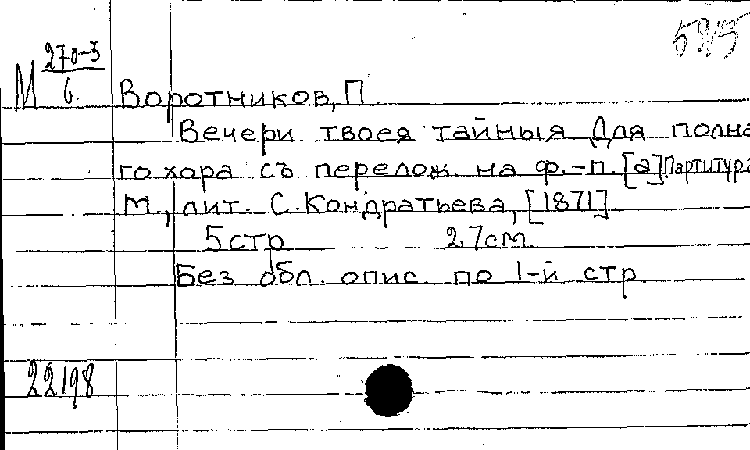 М 270-3
6.
Воротников, П.
Вечери твоея тайныя Для полна
го хора съ перелож. на ф.-п. [а] Партитура
М., лит. С. Кондратьева, [1871]
5 стр 27 см.
Без обл. опис. по 1-й стр.
22198